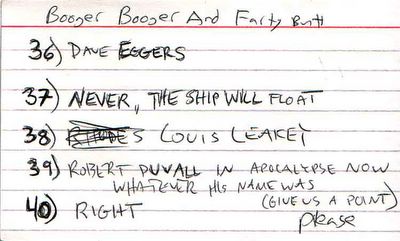 Booger Booger And Farty Butt
36) DAVE EGGERS
37) NEVER, THE SHIP WILL FLOAT
38) LOUIS LEAKEY
39) ROBERT DUVALL IN APOCALYPSE NOW
WHATEVER HIS NAME WAS
(GIVE US A POINT)
40) RIGHT
please